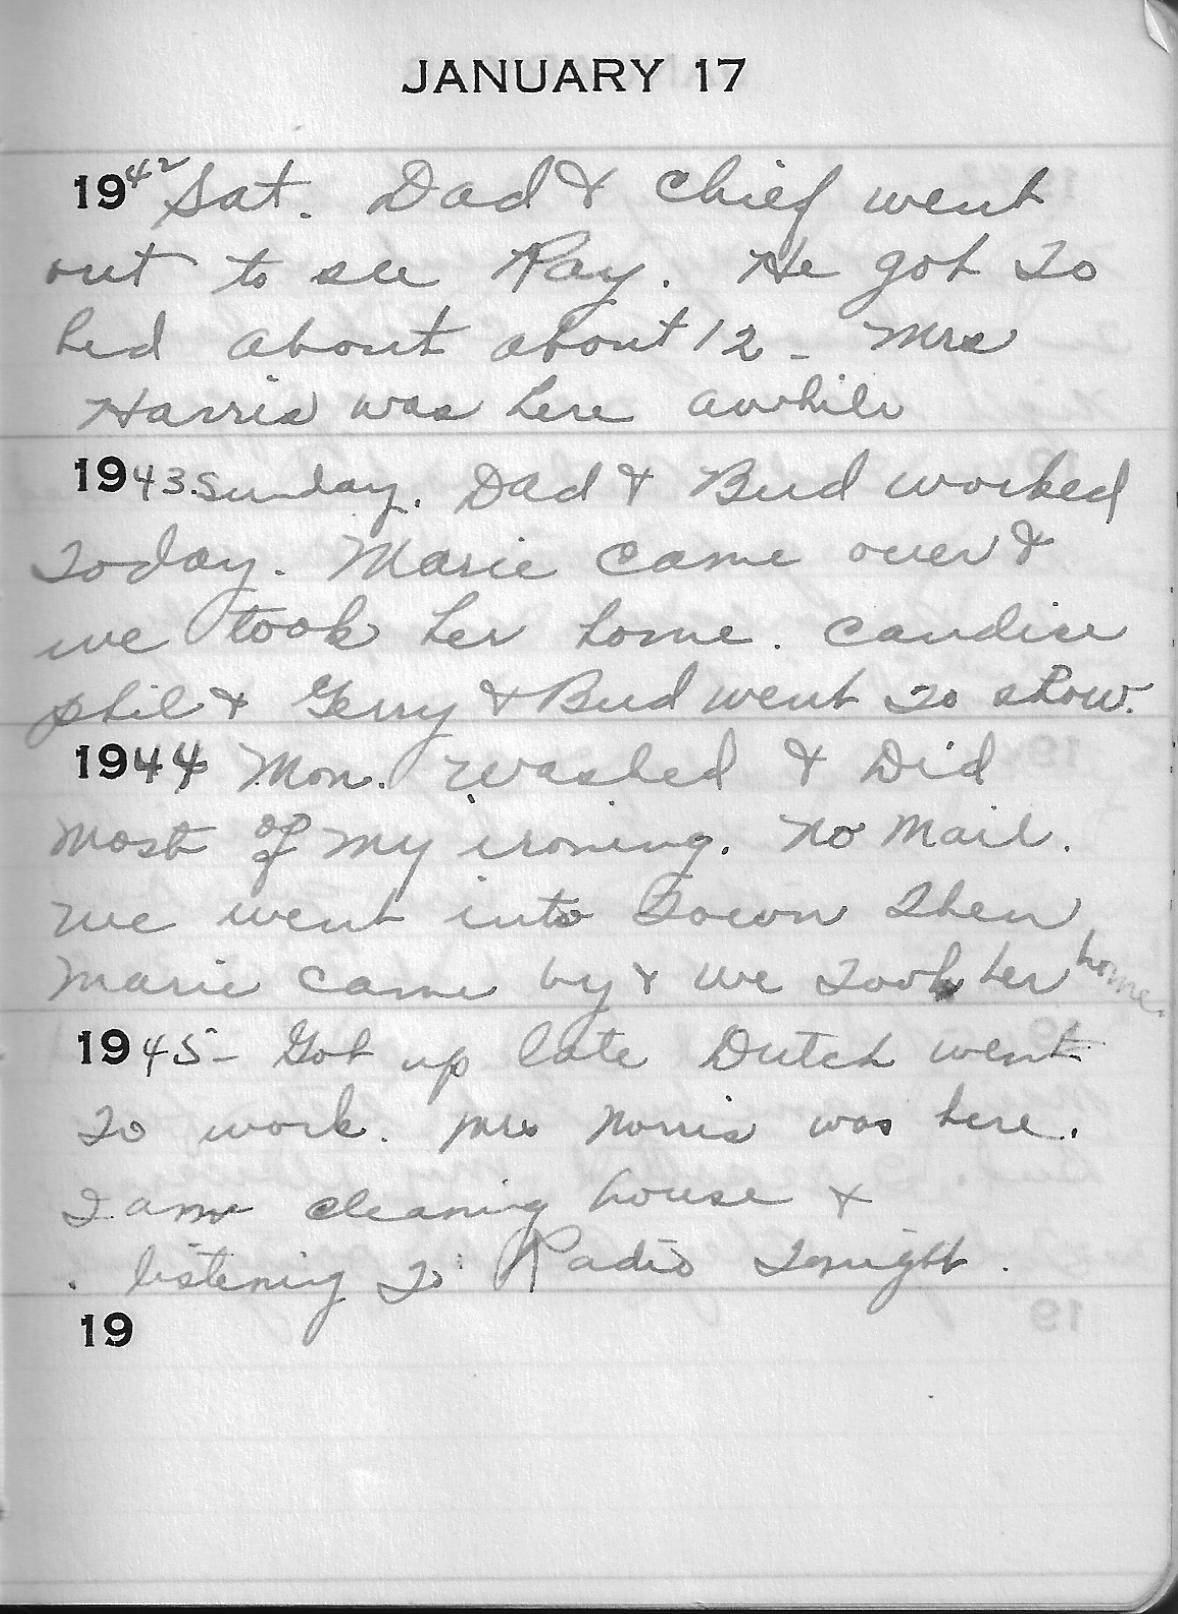 JANUARY 17
1942 Sat. Dad & Chief went
out to see Ray. He got to
bed about about 12 - Mrs
Harris was here awhile
1943. Sunday. Dad & Bud worked
today. Marie came over &
we took her home. Candise
Phil & Gerry & Bud went to show.
1944 Mon. Washed & Did
most of my ironing. No Mail.
We went into Town then
Marie came by & we took her home.
1945 - Got up late Dutch went
to work. Mrs Norris was here.
I am cleaning house &
listening to Radio tonight.
19